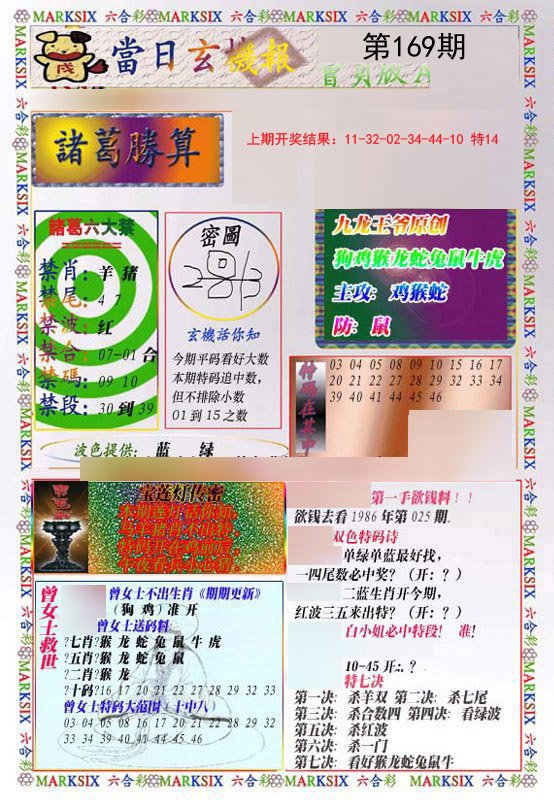 MARKSIX 六合彩 MARKSIX 六合彩 MARKSIX 六合彩 MARKSIX 六合彩
當日玄機報
第169期
諸葛勝算
上期开奖结果：11-32-02-34-44-10 特14
諸葛六大禁
禁肖：羊 猪
禁尾：4 7
禁波：红
禁合：07-01 合
禁碼：09 10
禁段：30 到 39
密圖
玄機話你知
今期平码看好大数
本期特码追中数，
但不排除小数
01 到 15 之数
九龙王爷原创
狗鸡猴龙蛇兔鼠牛虎
主攻：鸡猴蛇
防：鼠
03 04 05 08 09 10 15 16 17
20 21 22 27 28 29 32 33 34
39 40 41 44 45 46
波色提供：蓝 绿
宝莲灯传密
第一手欲钱料！！
欲钱去看 1986 年第 025 期。
双色特码诗
单绿单蓝最好找，
一四尾数必中奖？（开：？）
二蓝生肖开今期，
红波三五来出特？（开：？）
白小姐必中特段！ 准！
10-45 开:.？
特七决
第一决：杀羊双 第二决：杀七尾
第三决：杀合数四 第四决：看绿波
第五决：杀红波
第六决：杀一门
第七决：看好猴龙蛇兔鼠牛
曾女士救世
曾女士不出生肖《期期更新》
（狗 鸡）准 开
曾女士送码料
?七肖?猴 龙 蛇 兔 鼠 牛 虎
?五肖?猴 龙 蛇 兔 鼠
?二肖?猴 龙
?十码?16 17 20 21 22 27 28 29 32 33
曾女士特码大范围（十中八）
03 04 05 08 16 17 20 21 22 28 29 32
33 34 39 40 41 44 45 46
MARKSIX 六合彩 MARKSIX 六合彩 MARKSIX 六合彩 MARKSIX 六合彩